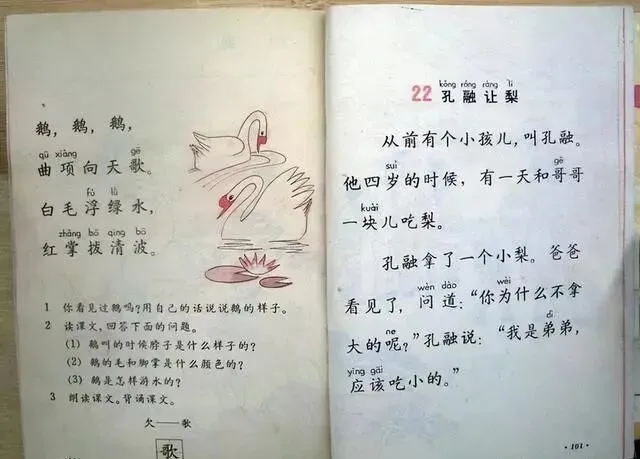 鹅，鹅，鹅，
qū xiàng gē
曲项向天歌。
fú lǜ
白毛浮绿水，
zhǎng bō qīng bō
红掌拨清波。
1 你看见过鹅吗？用自己的话说说鹅的样子。
2 读课文，回答下面的问题。
(1) 鹅叫的时候脖子是什么样子的？
(2) 鹅的毛和脚掌是什么颜色的？
(3) 鹅是怎样游水的？
3 朗读课文。背诵课文。
欠——歌
歌
kǒng róng ràng lí
22 孔融让梨
从前有个小孩儿，叫孔融。
suì gē
他四岁的时候，有一天和哥哥
kuài
一块儿吃梨。
孔融拿了一个小梨。爸爸
wèn dào wèi
看见了，问道：“你为什么不拿
ne dì
大的呢？”孔融说：“我是弟弟，
yīng gāi
应该吃小的。”
·101·